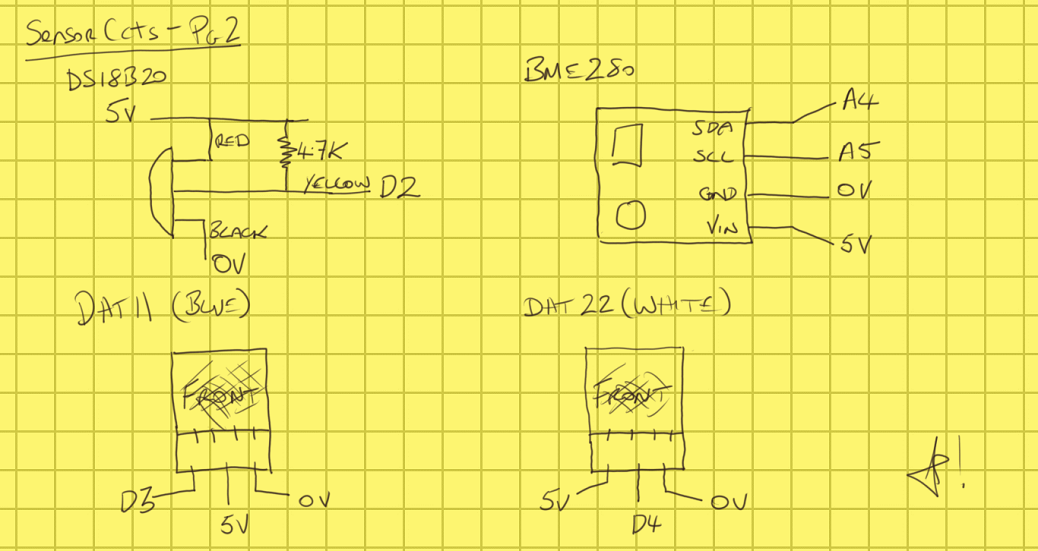 Sensor Ccts - Pg 2
DS18B20
5V
RED
4.7K
YELLOW D2
BLACK
0V
BME280
SDA A4
SCL A5
GND 0V
VIN 5V
DAT11 (BLUE)
FRONT
D3 5V 0V
DAT22 (WHITE)
FRONT
5V D4 0V